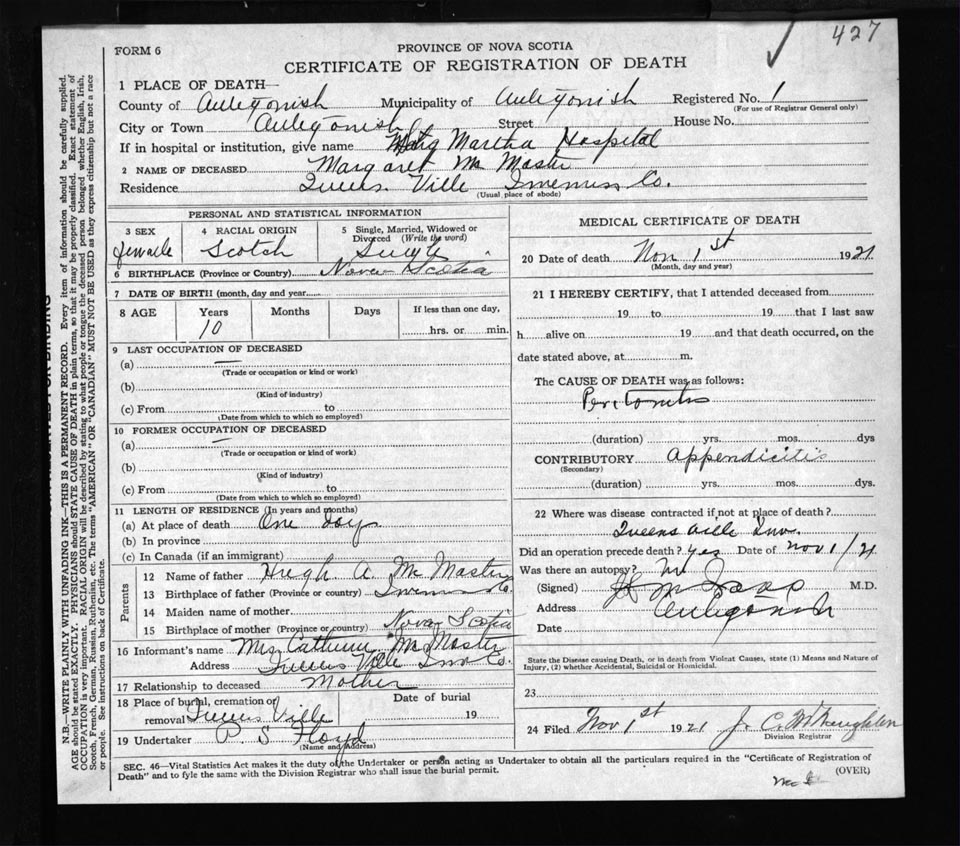 427
FORM 6
PROVINCE OF NOVA SCOTIA
CERTIFICATE OF REGISTRATION OF DEATH
1 PLACE OF DEATH—
County of Antigonish Municipality of Antigonish Registered No. 1
(For use of Registrar General only)
City or Town Antigonish Street House No.
If in hospital or institution, give name Martha Hospital
2 NAME OF DECEASED Margaret Mc Master
Residence Queens Ville Inverness Co.
(Usual place of abode)
PERSONAL AND STATISTICAL INFORMATION
3 SEX
female
4 RACIAL ORIGIN
Scotch
5 Single, Married, Widowed or
Divorced (Write the word)
Single
6 BIRTHPLACE (Province or Country) Nova Scotia
7 DATE OF BIRTH (month, day and year
8 AGE Years Months Days If less than one day,
10 hrs. or min.
9 LAST OCCUPATION OF DECEASED
(a) —
(Trade or occupation or kind or work)
(b)
(Kind of industry)
(c) From to
(Date from which to which so employed)
10 FORMER OCCUPATION OF DECEASED
(a) —
(Trade or occupation or kind of work)
(b)
(Kind of industry)
(c) From to
(Date from which to which so employed)
11 LENGTH OF RESIDENCE (In years and months)
(a) At place of death One day
(b) In province
(c) In Canada (if an immigrant)
Parents
12 Name of father Hugh A. Mc Master
13 Birthplace of father (Province or country) Inverness Co.
14 Maiden name of mother
15 Birthplace of mother (Province or country) Nova Scotia
16 Informant's name Mrs Catherine Mc Master
Address Queens Ville Inv Co.
17 Relationship to deceased Mother
18 Place of burial, cremation or
removal Queens Ville
Date of burial
19
19 Undertaker P. S Floyd
(Name and Address)
MEDICAL CERTIFICATE OF DEATH
20 Date of death Nov 1st 1921
(Month, day and year)
21 I HEREBY CERTIFY, that I attended deceased from
19 to 19 that I last saw
h alive on 19 and that death occurred, on the
date stated above, at m.
The CAUSE OF DEATH was as follows:
Peritonitis
(duration) yrs. mos. dys
CONTRIBUTORY Appendicitis
(Secondary)
(duration) yrs. mos. dys.
22 Where was disease contracted if not at place of death?
Queens ville Inv.
Did an operation precede death? Yes Date of Nov 1/21
Was there an autopsy? No
(Signed) M.D.
Address Antigonish
Date
State the Disease causing Death, or in death from Violent Causes, state (1) Means and Nature of
Injury, (2) whether Accidental, Suicidal or Homicidal.
23
24 Filed Nov 1st 1921 J. C. McNaughton
Division Registrar
SEC. 46—Vital Statistics Act makes it the duty of the Undertaker or person acting as Undertaker to obtain all the particulars required in the "Certificate of Registration of
Death" and to fyle the same with the Division Registrar who shall issue the burial permit.
(OVER)
N.B.—WRITE PLAINLY WITH UNFADING INK—THIS IS A PERMANENT RECORD. Every item of information should be carefully supplied.
AGE should be stated EXACTLY. PHYSICIANS should STATE CAUSE OF DEATH in plain terms, so that it may be properly classified. Exact statement of
OCCUPATION is very important. RACIAL ORIGIN will be described by stating to what people or tongue the deceased person belonged whether English, Irish,
Scotch, French, German, Russian, Ruthenian, etc. The terms "AMERICAN" OR "CANADIAN" MUST NOT BE USED as they express citizenship but not a race
or people. See instructions on back of Certificate.